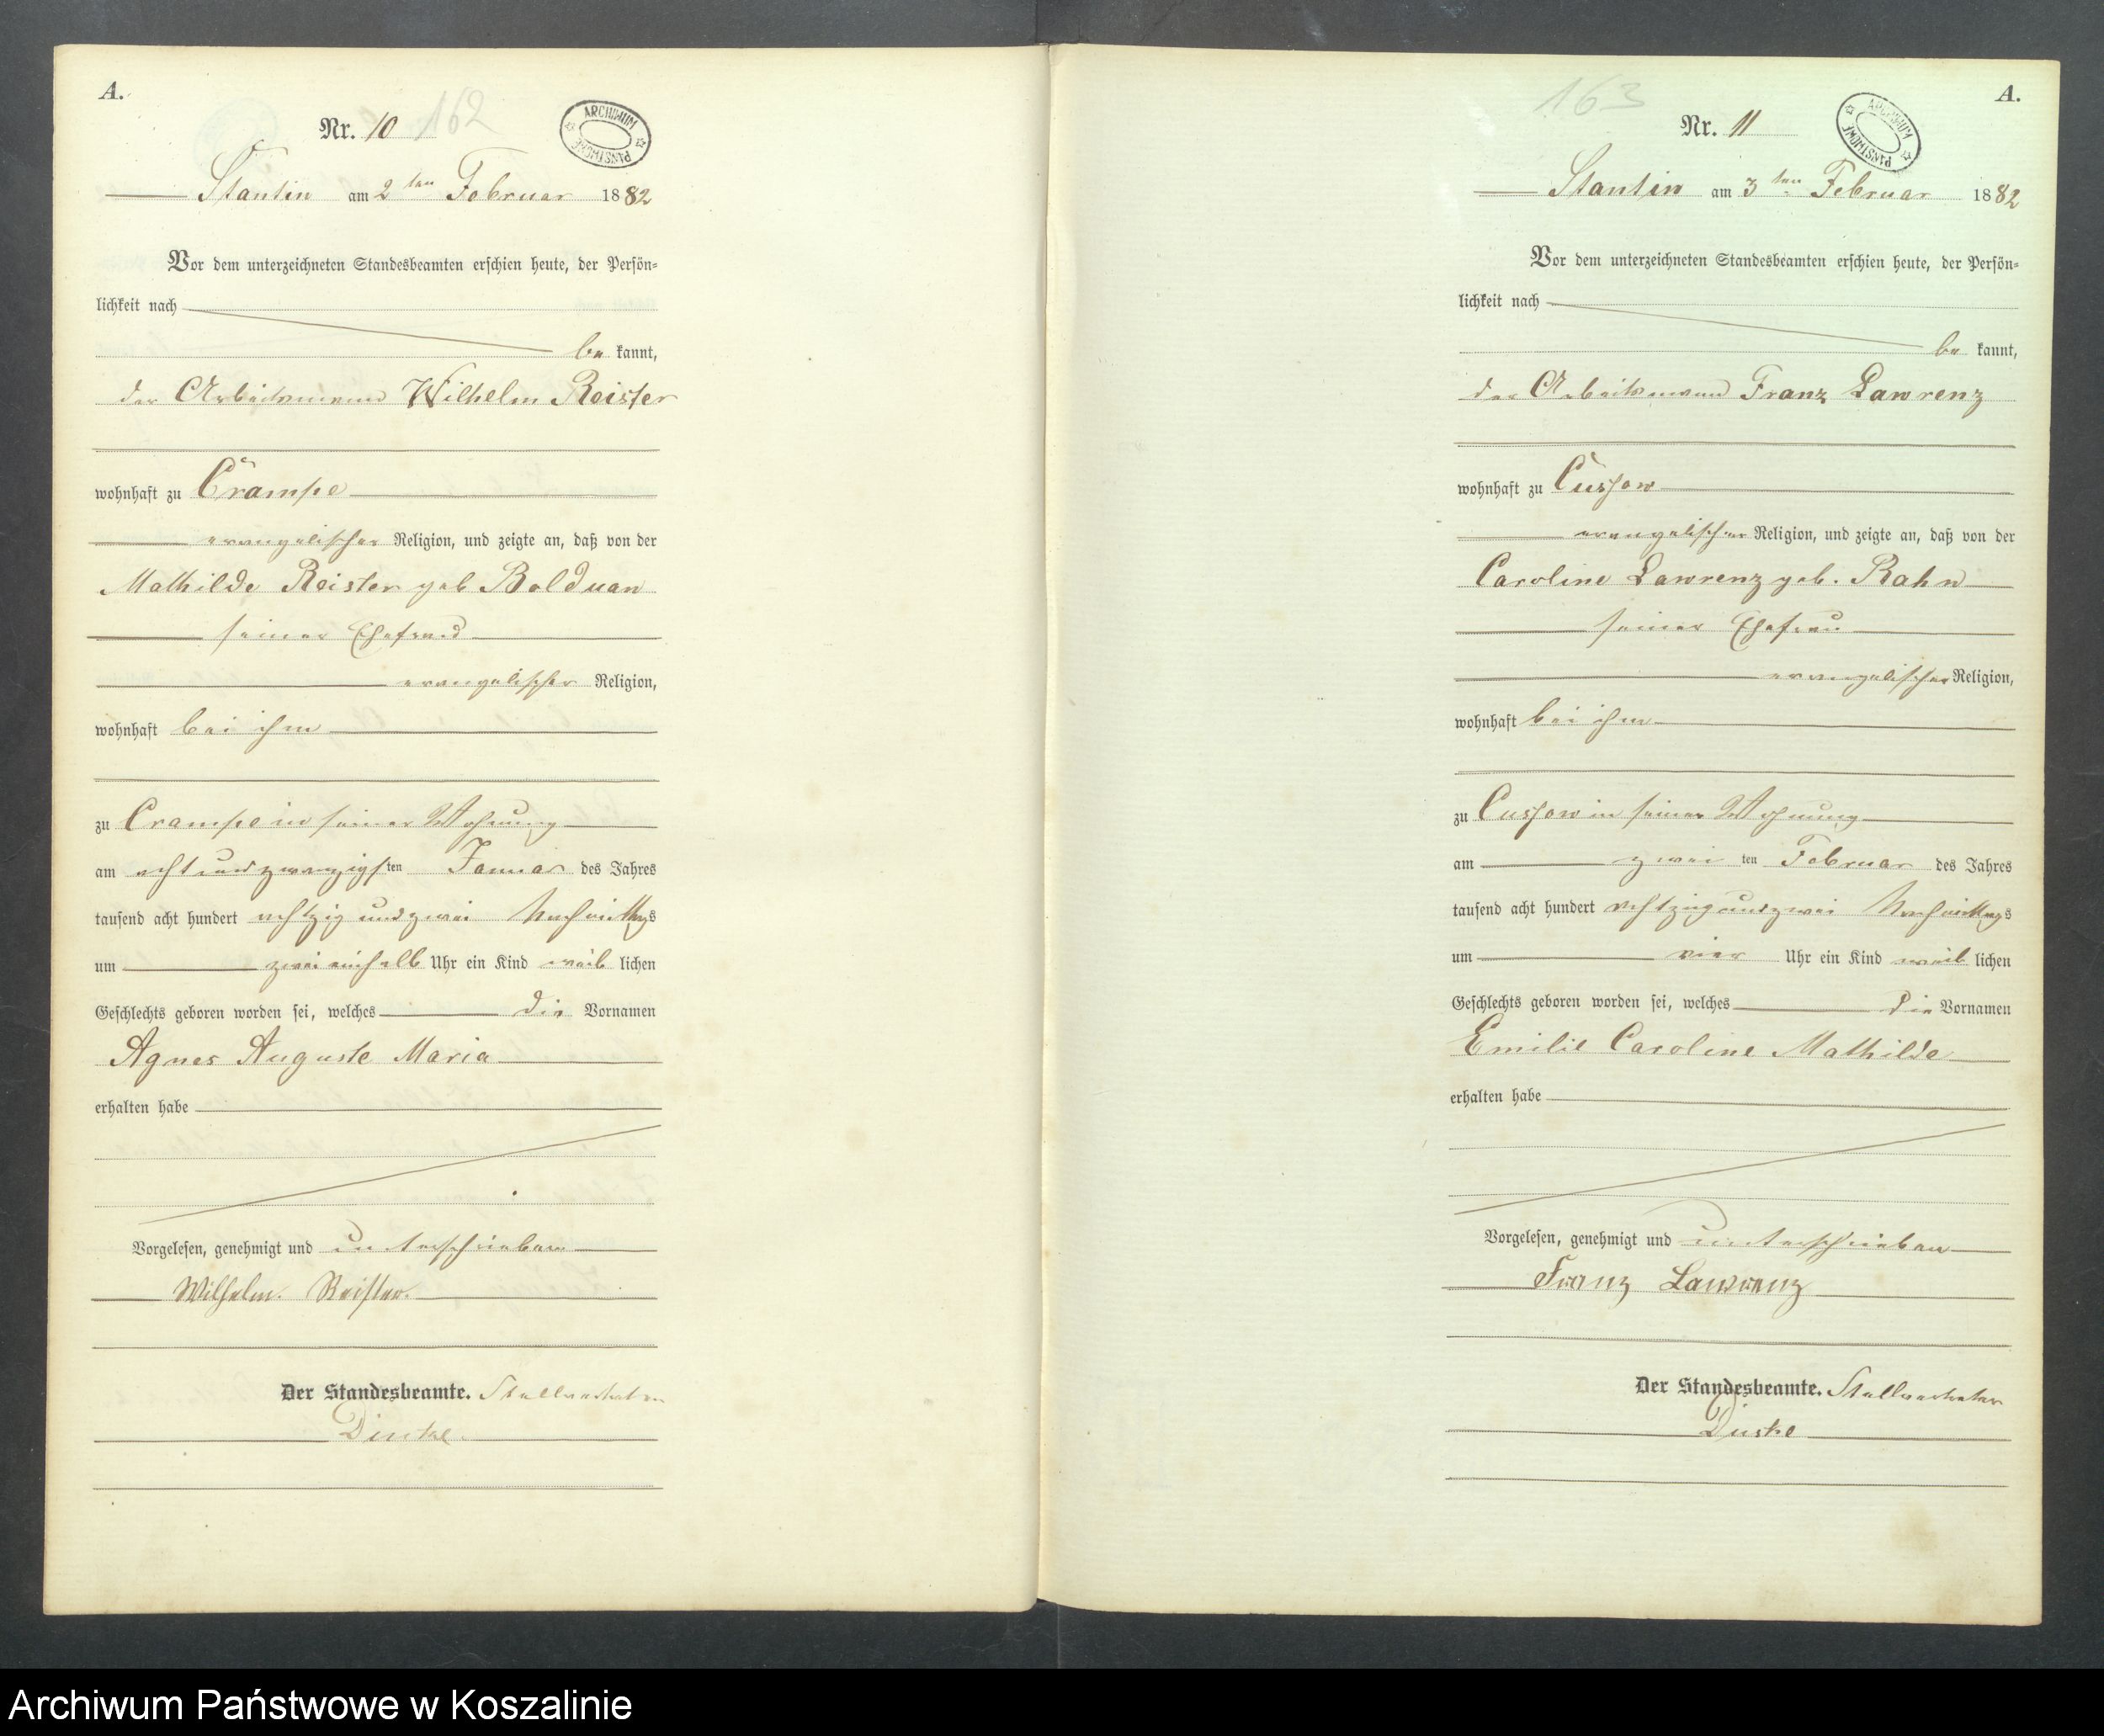 A.
Nr. 10 162
ARCHIWUM PAŃSTWOWE
Stantin am 2ten Februar 1882
Vor dem unterzeichneten Standesbeamten erschien heute, der Persön-
lichkeit nach
be kannt,
der Arbeitsmann Wilhelm Reister
wohnhaft zu Crampe
evangelischer Religion, und zeigte an, daß von der
Mathilde Reister geb Bolduan
seiner Ehefrau
evangelischer Religion,
wohnhaft bei ihm
zu Crampe in seiner Wohnung
am acht und zwanzigsten Januar des Jahres
tausend acht hundert achtzig und zwei Nachmittags
um zwei einhalb Uhr ein Kind weib lichen
Geschlechts geboren worden sei, welches die Vornamen
Agnes Auguste Maria
erhalten habe
Vorgelesen, genehmigt und unterschrieben
Wilhelm. Reister.
Der Standesbeamte. Stellvertreter
163
A.
Nr. 11
ARCHIWUM PAŃSTWOWE
Stantin am 3ten Februar 1882
Vor dem unterzeichneten Standesbeamten erschien heute, der Persön-
lichkeit nach
be kannt,
der Arbeitsmann Franz Lawrenz
wohnhaft zu Cussow
evangelischer Religion, und zeigte an, daß von der
Caroline Lawrenz geb. Rahn
seiner Ehefrau
evangelischer Religion,
wohnhaft bei ihm
zu Cussow in seiner Wohnung
am zwei ten Februar des Jahres
tausend acht hundert achtzig und zwei Nachmittags
um vier Uhr ein Kind weib lichen
Geschlechts geboren worden sei, welches die Vornamen
Emilie Caroline Mathilde
erhalten habe
Vorgelesen, genehmigt und unterschrieben
Franz Lawrenz
Der Standesbeamte. Stellvertreter
Archiwum Państwowe w Koszalinie